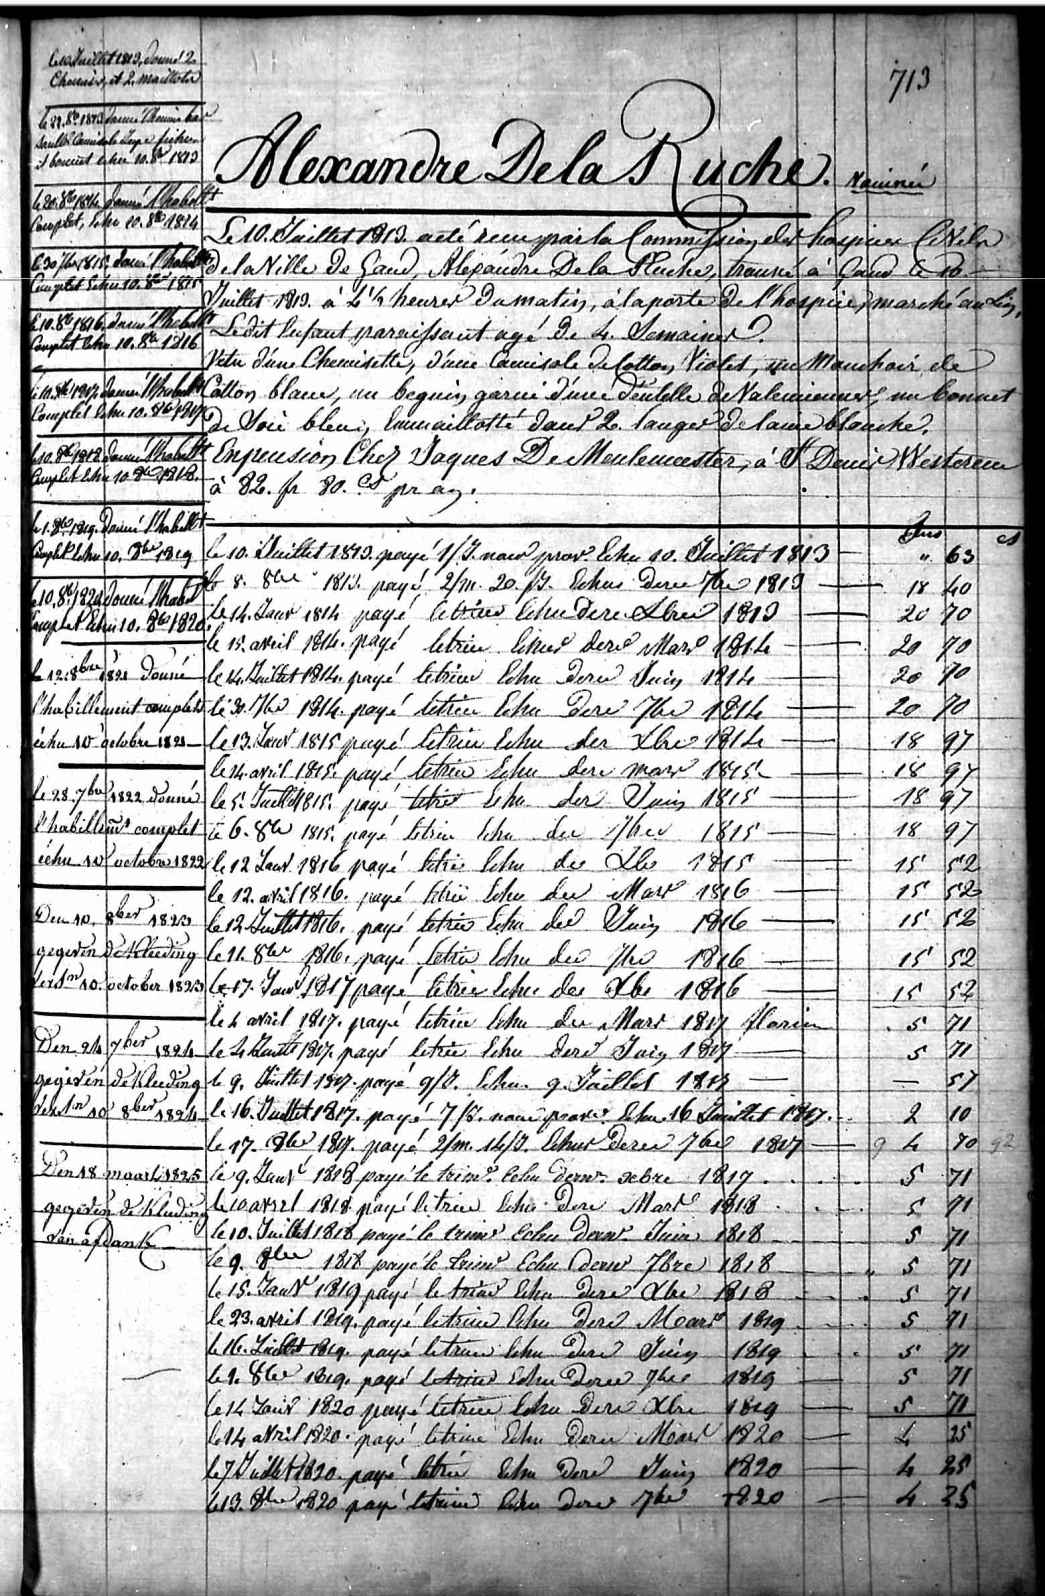 713
Alexandre De la Ruche.
Le 10. Juillet 1813. a été reçu par la Commission des hospices Civils
de la Ville de Gand, Alexandre De la Ruche, trouvé à Gand le 10
Juillet 1813. à 2 1/2 heures du matin, à la porte de l'hospice, marché au Lin,
Ledit Enfant paraissant agé de 4. Semaines.
Vetu d'une Chemisette, d'une Camisole de Cotton Violet, un Mouchoir de
Cotton blanc, un beguin garni d'une Dentelle de Valenciennes, un bonnet
de Soie bleu, Emmaillotté dans 2. langes de laine blanche.
En pension Chez Jaques De Meulemeester, à St Denis Westrem
à 82. fr 80. cs pr an.
le 10 Juillet 1813, donné 2
Chemises, et 2. maillots
le 20. 8bre 1814 donné l'habillt
Complet, Echu 10. 8bre 1814
le 30 7bre 1815. donné l'habillt
Complet Echu 10. 8bre 1815
le 10. 8bre 1816. donné l'habillt
Complet Echu 10. 8bre 1816
le 10. 8bre 1817 donné l'habillt
Complet Echu 10. 8bre 1817
le 10. 8bre 1818 donné l'habillt
Complet Echu 10 8bre 1818
le 1. 8bre 1819. donné l'habillt
Complet Echu 10. 8bre 1819
le 10. 8bre 1820 donné l'habilt
Complet Echu 10. 8bre 1820.
le 12. 8bre 1821 donné
l'habillement complet
échu 10 octobre 1821
le 28. 7bre 1822 donné
l'habillemt complet
échu 10 octobre 1822
Den 10. 8ber 1823
gegeven de kleeding
versn 10. october 1823
Den 24 7ber 1824
gegeven de kleeding
versn 10 8ber 1824
Den 18 maart 1825
gegeven de kleeding
van afdank
frs cs
le 10. Juillet 1813. payé 1/J. nour prov Echu 10. Juillet 1813 " 63
le 8. 8bre 1813. payé 2/m. 20./J. Echus dere 7bre 1813 18 40
le 14. Janv 1814 payé le trim Echu dere Xbre 1813 20 70
le 15. avril 1814. payé letrim Echu dere Mars 1814 20 70
le 14 Juillet 1814. payé letrim Echu dere Juin 1814 20 70
le 30. 7bre 1814. payé letrim Echu dere 7bre 1814 20 70
le 13. Janv 1815 payé letrim Echu der Xbre 1814 18 97
le 14 avril 1815. payé letrim Echu dere mars 1815 18 97
le 5. Juillet 1815. payé letrim Echu der Juin 1815 18 97
le 6. 8bre 1815. payé letrim Echu der 7bre 1815 18 97
le 12 Janv 1816 payé letrim Echu der Xbre 1815 15 52
le 12. avril 1816. payé letrim Echu der Mars 1816 15 52
le 12 Juillet 1816. payé letrim Echu der Juin 1816 15 52
le 11. 8bre 1816. payé letrim Echu der 7bre 1816 15 52
le 17. Janv 1817 payé letrim Echu der Xbre 1816 15 52
le 4 avril 1817. payé letrim Echu der Mars 1817 florin 5 71
le 4 Juillet 1817. payé letrim Echu dere Juin 1817 5 71
le 9. Juillet 1817. payé 9/J. Echu 9. Juillet 1817 — 57
le 16. Juillet 1817. payé 7/J. nour prov. Echu 16 Juillet 1817. 2 10
le 17. 8bre 1817. payé 2/m. 14/J. Echus dere 7bre 1817 4 70
le 9. Janv 1818 payé le trimr. Echu dernr xbre 1817 5 71
le 10 avril 1818 payé le trim Echu dere Mars 1818 5 71
le 10. Juillet 1818 payé le trimr Echu dernr Juin 1818 5 71
le 9. 8bre 1818 payé le trimr Echu dernr 7bre 1818 5 71
le 15. Janv 1819 payé le trimr Echu dere Xbre 1818 5 71
le 23. avril 1819. payé letrim Echu dere Mars 1819 5 71
le 16. Juillet 1819. payé letrim Echu dere Juin 1819 5 71
le 1. 8bre 1819. payé letrim Echu dere 7bre 1819 5 71
le 14 Janv 1820 payé letrim Echu dere Xbre 1819 5 71
le 14 avril 1820. payé letrim Echu dere Mars 1820 4 25
le 7 Juillet 1820. payé letrim Echu dere Juin 1820 4 25
le 13 8bre 1820 payé letrim Echu dere 7bre 1820 4 25